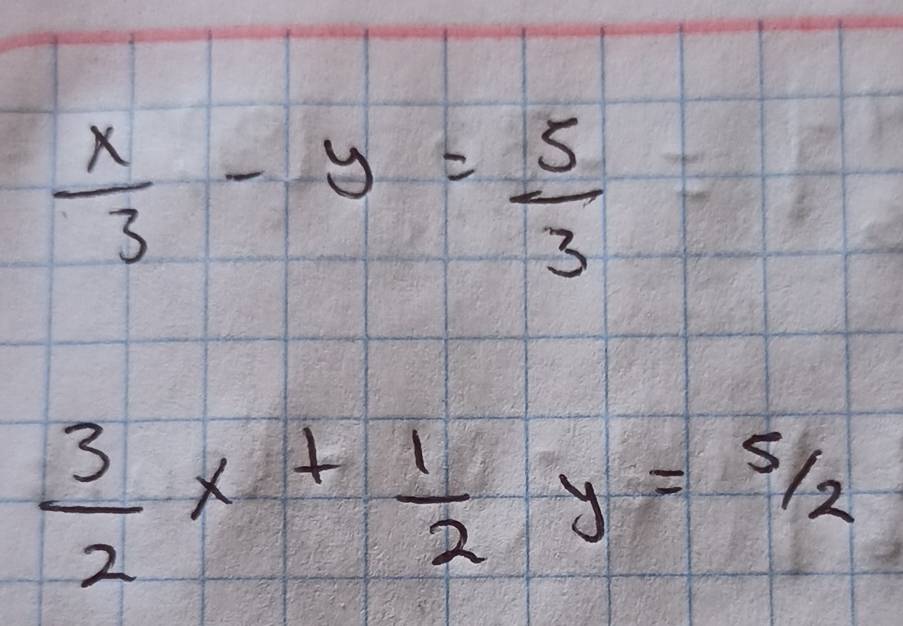 x/3 - y = 5/3
3/2 x + 1/2 y = 5/2